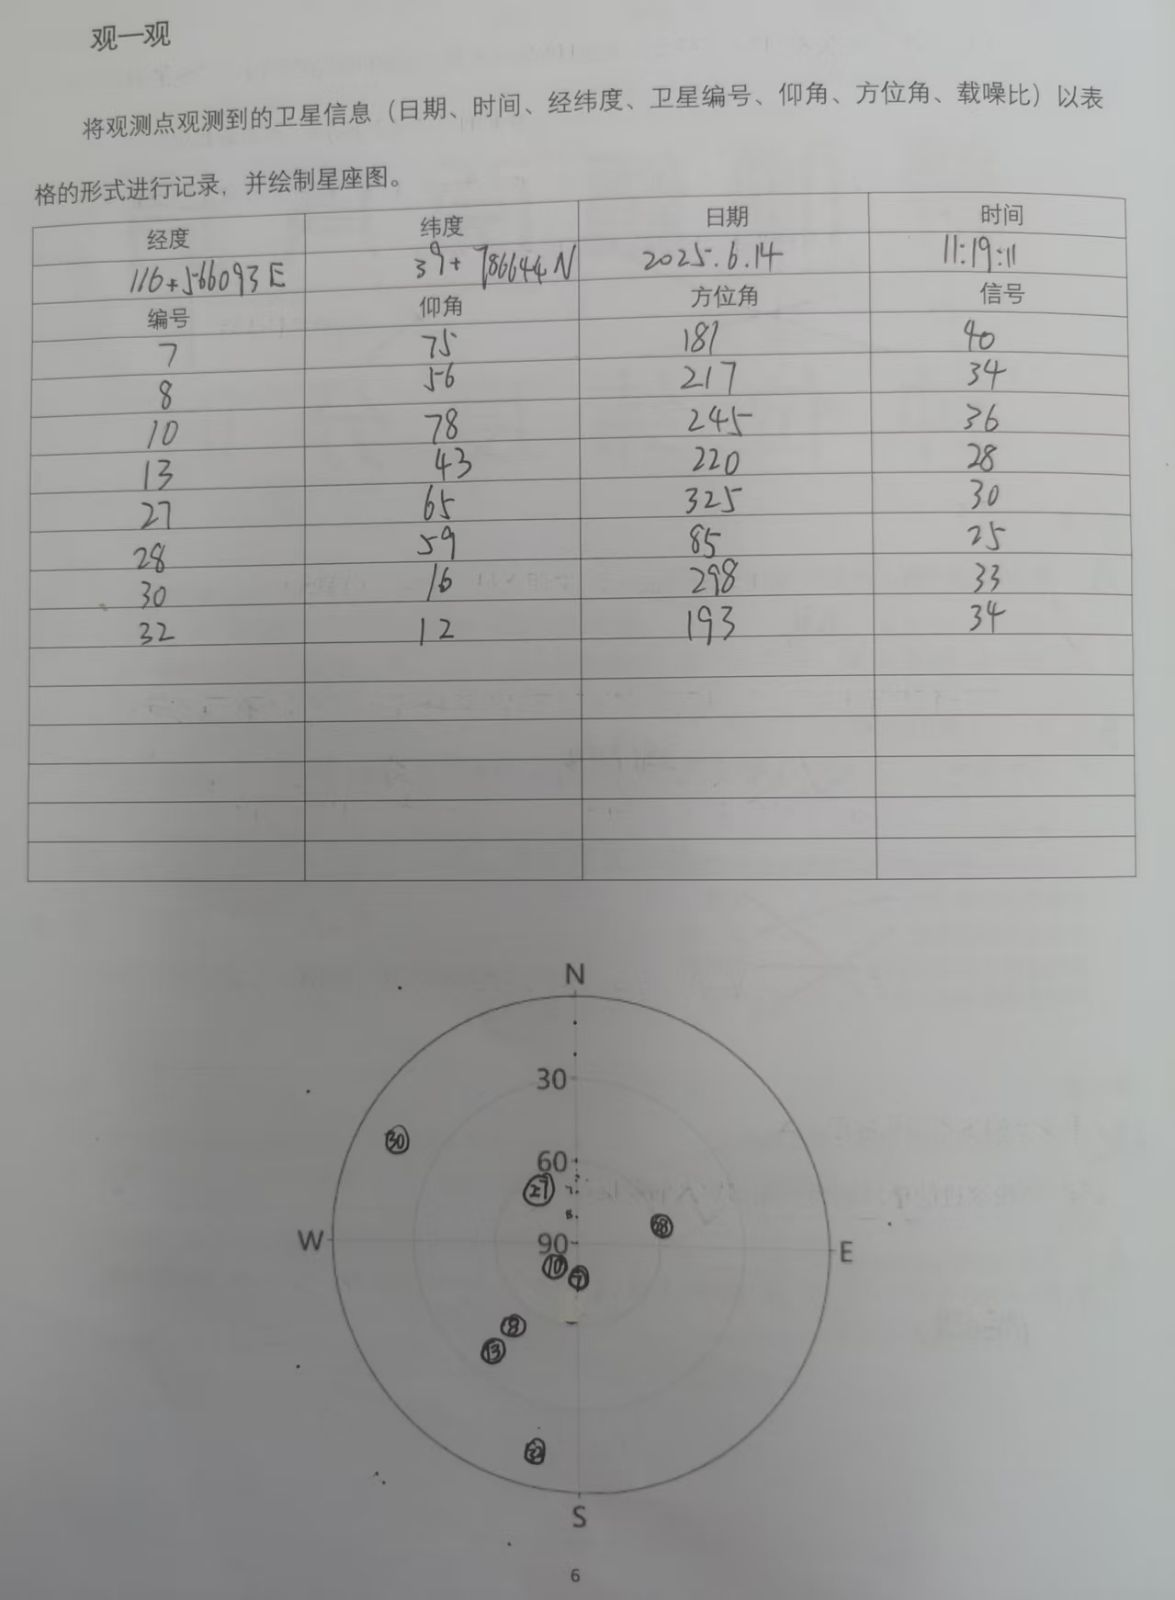 观一观
将观测点观测到的卫星信息（日期、时间、经纬度、卫星编号、仰角、方位角、载噪比）以表
格的形式进行记录，并绘制星座图。
经度 纬度 日期 时间
116+566093E 39+786644N 2025.6.14 11:19:11
编号 仰角 方位角 信号
7 75 181 40
8 56 217 34
10 78 245 36
13 43 220 28
27 65 325 30
28 59 85 25
30 16 298 33
32 12 193 34
N
30
30
60
27
28
W 90 E
10 7
8
13
32
S
6